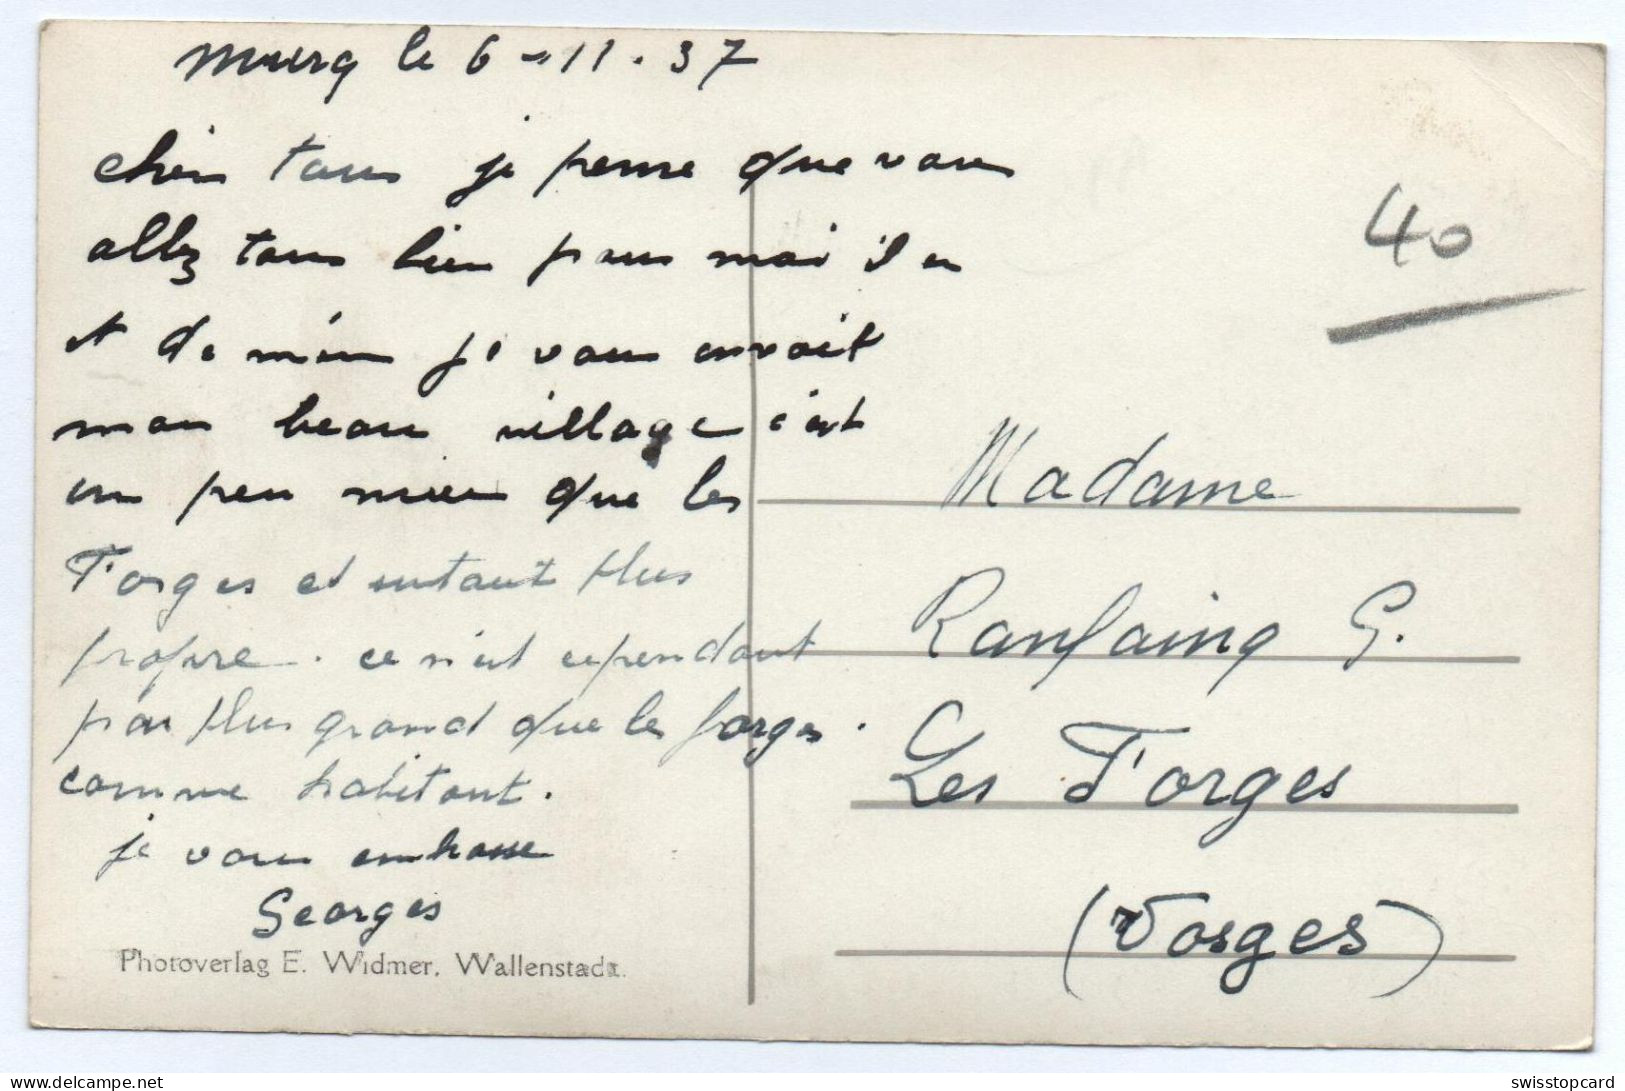 Murg le 6-11.37
chers tous je pense que vous
allez tous bien pour moi il en
et de même je vous envoit
mon beau village c'est
un peu mieu que les
Forges et surtout plus
propre. ce n'est cependant
pas plus grand que les forges.
comme habitant.
je vous embrasse
Georges
Photoverlag E. Widmer, Wallenstadt.
40
Madame
Ranfaing G.
Les Forges
(Vosges)
swisstopcard